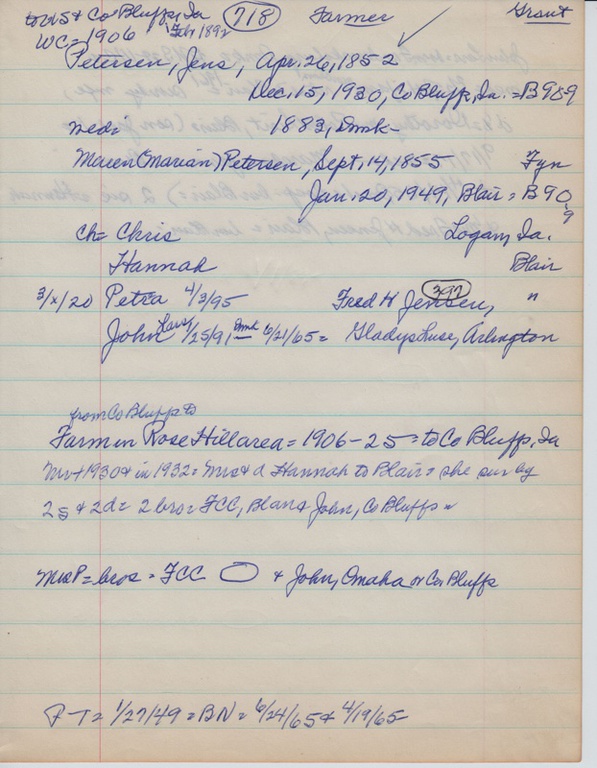 to US & Co Bluffs, Ia 718 Farmer Grant
WC = 1906 Feb 1892
Petersen, Jens, Apr. 26, 1852
Dec. 15, 1930, Co Bluffs, Ia. = B989
med = 1883, Dmk -
Maren (Marian) Petersen, Sept. 14, 1855 Fyn
Jan. 20, 1949, Blair = B90-9
Ch = Chris Logan, Ia.
Hannah Blair
3/x/20 Petra 4/3/95 Fred H Jensen, 397 "
John Lars 1/25/91, Dmk 6/21/65 = Gladys Luse, Arlington
from Co Bluffs to
Farm in Rose Hill area = 1906 - 25 = to Co Bluffs, Ia
Mr + 1930 & in 1932 = Mrs & d Hannah to Blair = she sur by
2s & 2d = 2 bros = FCC, Blair & John, Co Bluffs
Mrs P = bros = FCC & John, Omaha or Co Bluffs
P-T = 1/27/49 = BN = 6/24/65 & 4/19/65